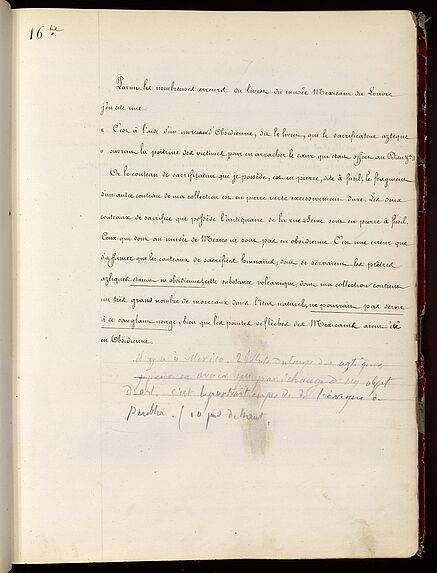 16 te
Parmi les nombreuses erreurs du livret du musée Mexicain du Louvre
j'en cite une
« C'est à l'aide d'un morceau d'Obsidienne, dit le livret, que le sacrificateur aztèque
« ouvrait la poitrine des victimes pour en arracher le cœur qui était offert au Dieu
Or le couteau de sacrificateur que je possède, est en pierre, dite à fusil; le fragment
d'un autre couteau de ma collection est en pierre verte excessivement dure. Les deux
couteaux de sacrifice que possède l'antiquaire de la rue de Seine sont en pierre à fusil.
Ceux qui sont au musée de Mexico ne sont pas en obsidienne. C'est une erreur que
d'affirmer que les couteaux de sacrifices humains, dont se servaient les prêtres
aztèques étaient en obsidienne, cette substance volcanique, dont ma collection contient
un très grand nombre de morceaux dans l'état naturel, ne pourrait pas servir
à ce sanglant usage, bien que les pointes de flèches des Mexicains aient été
en Obsidienne.
Il y a à Mexico. 2 du temps des aztèques
en avoir par échange d'un objet
D'art, c'est le portrait de l'évèque de
(10 pieds de haut.